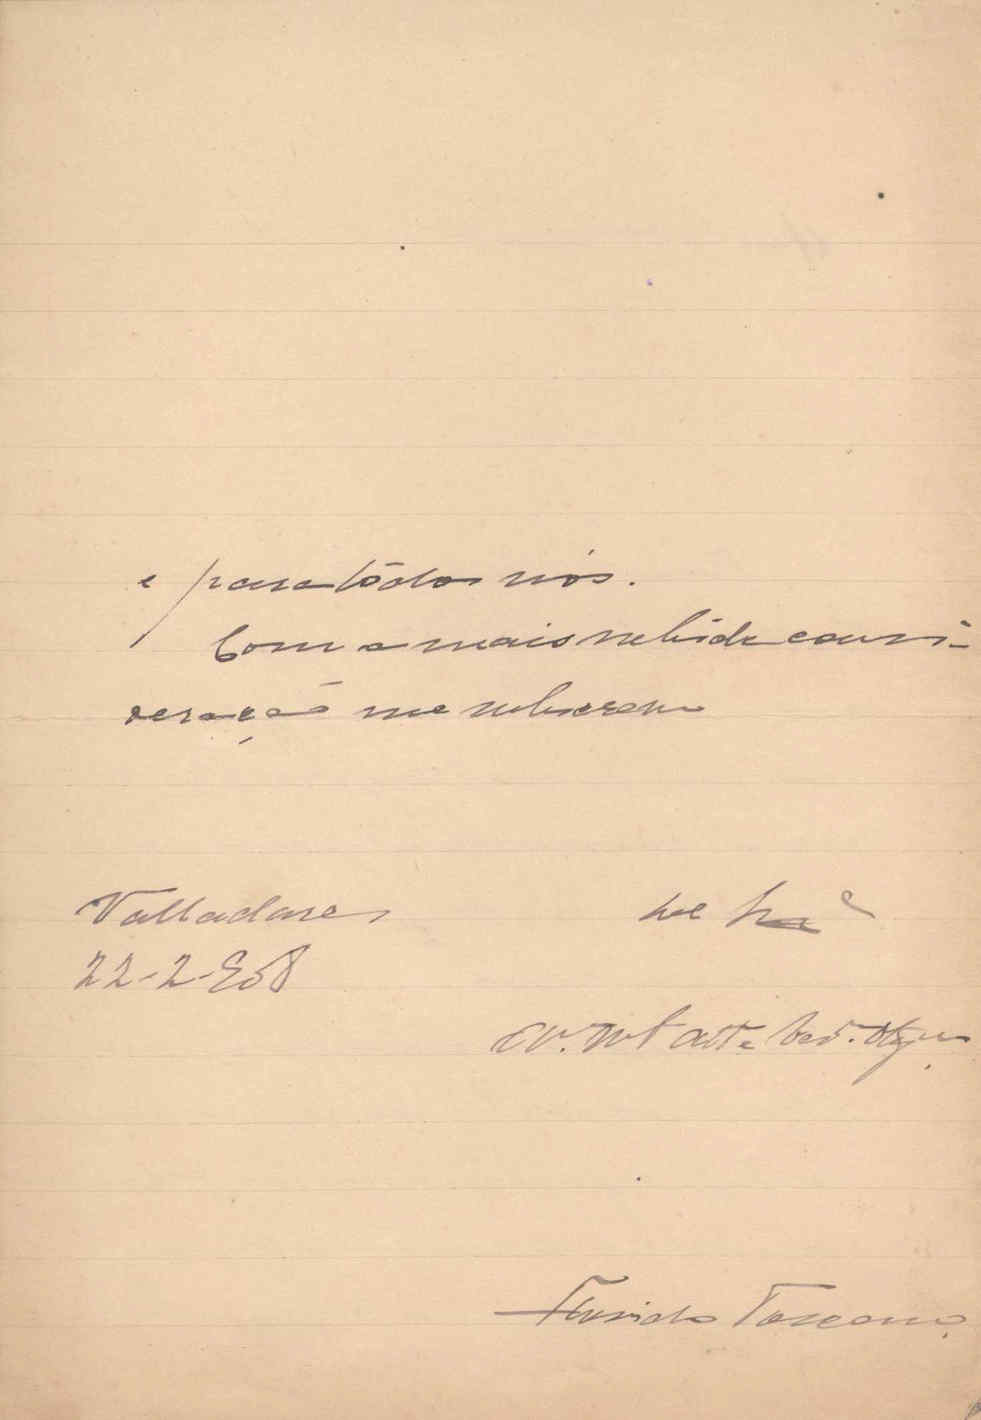 e para tôdos nós.
Com a mais subida consi-
deração me subscrevo
Valladares
22-2-958
de V. Excia
Att. Ved. Obg.
Florido Toscano